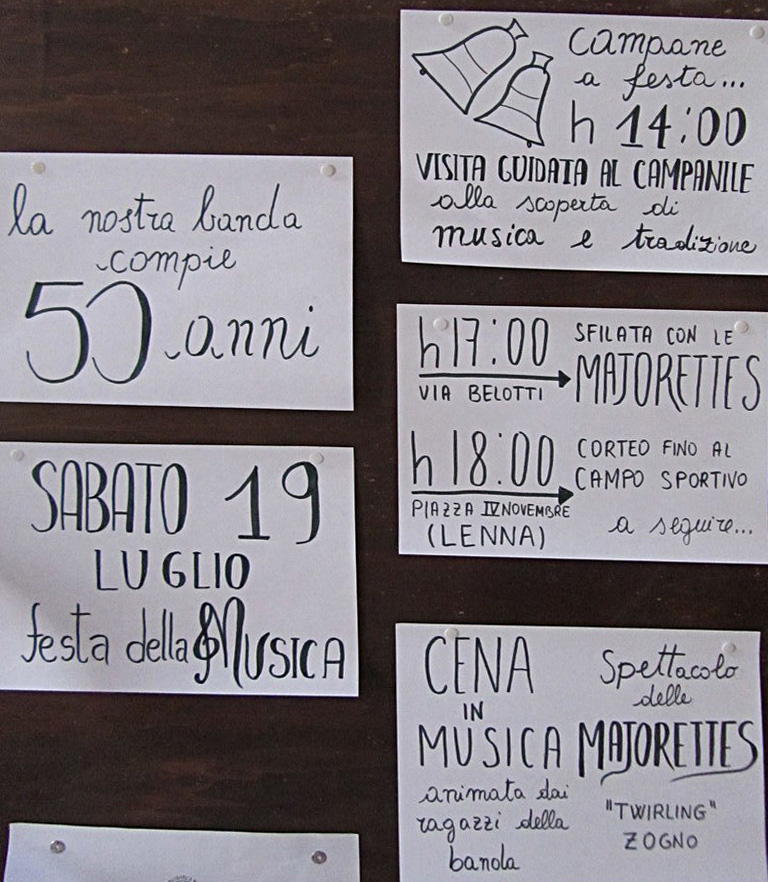 la nostra banda
compie
50 anni
SABATO 19
LUGLIO
festa della MUSICA
campane
a festa...
h 14:00
VISITA GUIDATA AL CAMPANILE
alla scoperta di
musica e tradizione
h 17:00
VIA BELOTTI
SFILATA CON LE
MAJORETTES
h 18:00
PIAZZA IV NOVEMBRE
(LENNA)
CORTEO FINO AL
CAMPO SPORTIVO
a seguire...
CENA
IN
MUSICA
animata dai
ragazzi della
banda
Spettacolo
delle
MAJORETTES
"TWIRLING"
ZOGNO